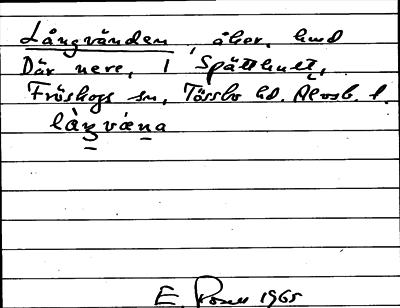 Långvänden, åker, hmd
Där nere, i Spätthult,
Fröskogs sn, Tössbo hd. Älvsb. l.
làŋvæna
E. 1965